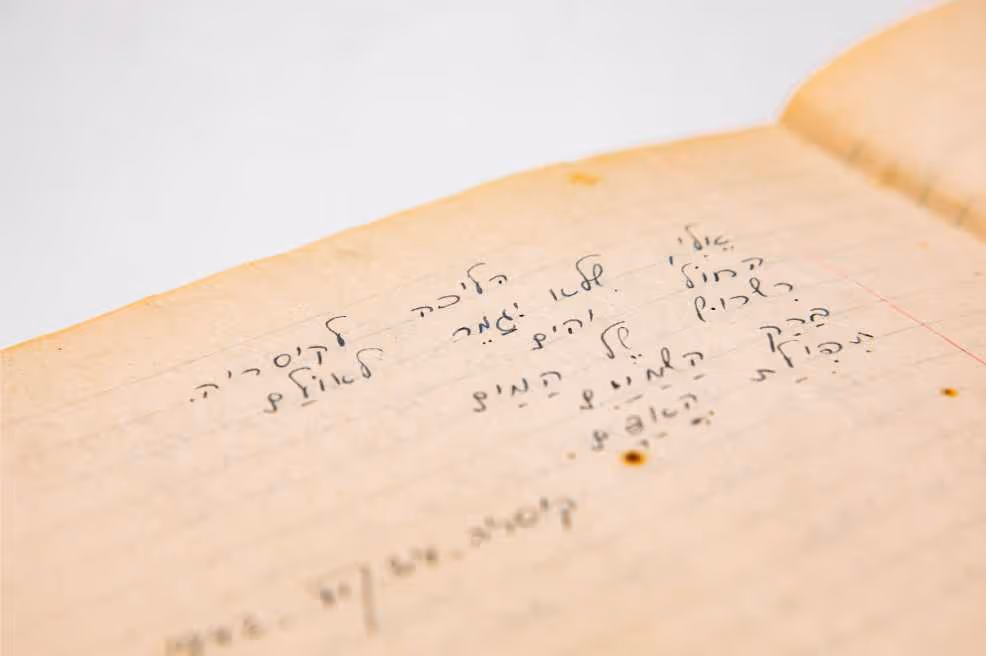 הליכה לקיסריה.
אֵלִי שלא יִגָמֵר לעוֹלָם
החול והים
רשרוש של הַמַיִם
בְּרַק הַשָמַיִם
תְפִילַת הָאָדָם.
קיסריה